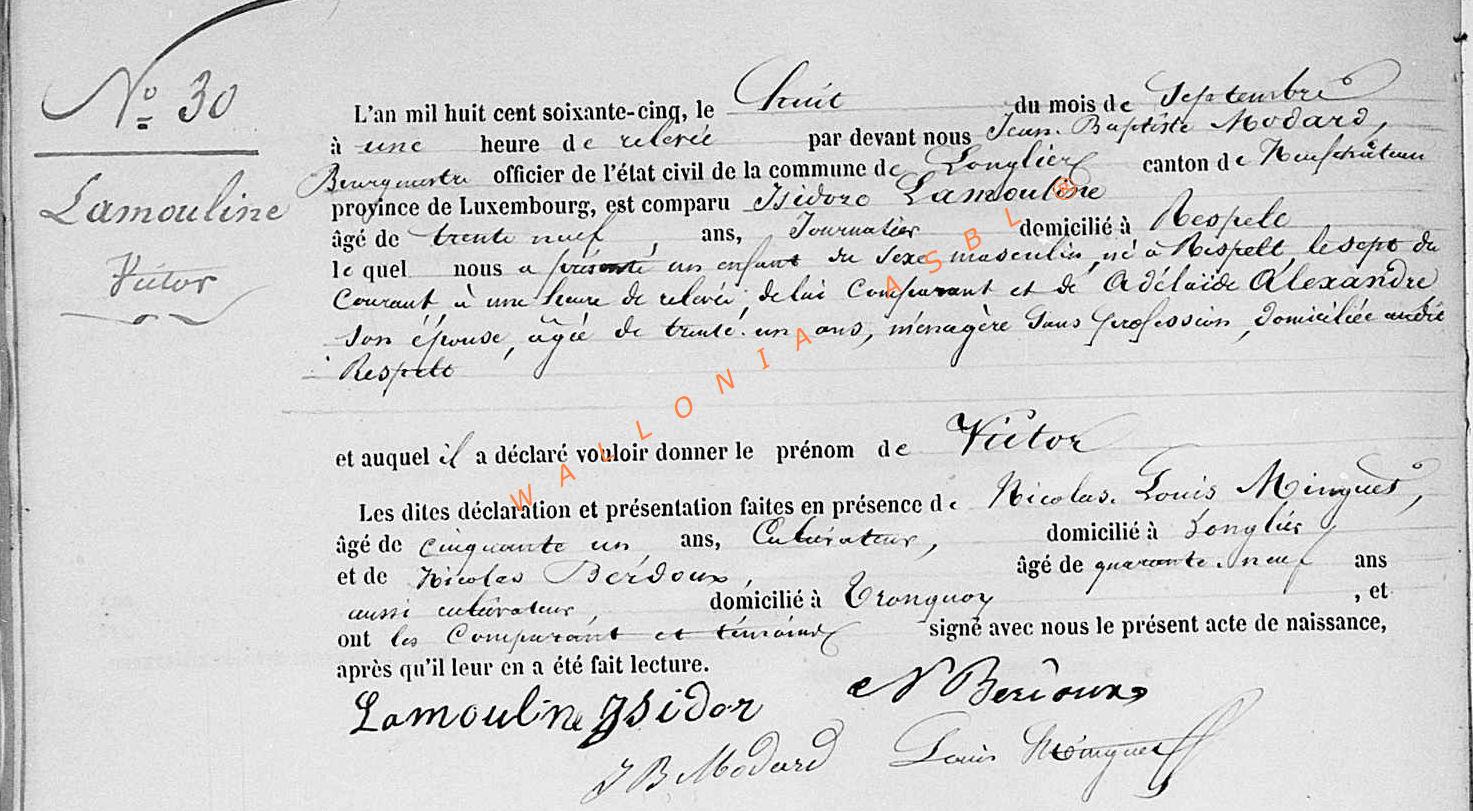 N° 30
Lamouline
Victor
L'an mil huit cent soixante-cinq, le huit du mois de Septembre
à une heure de relevée par devant nous Jean-Baptiste Modard,
Bourgmestre officier de l'état civil de la commune de Longlier canton de Neufchâteau
province de Luxembourg, est comparu Isidore Lamouline
âgé de trente neuf, ans, Journalier domicilié à Respelt
le quel nous a présenté un enfant du sexe masculin, né à Respelt, le sept du
Courant, à une heure de relevée, de lui Comparant et de Adélaïde Alexandre
son épouse, âgée de trente-un ans, ménagère sans profession, domiciliée audit
Respelt
et auquel il a déclaré vouloir donner le prénom de Victor
Les dites déclaration et présentation faites en présence de Nicolas-Louis Minguet,
âgé de cinquante un, ans, Cultivateur, domicilié à Longlier
et de Nicolas Berdoux, âgé de quarante-neuf ans
aussi cultivateur, domicilié à Tronquoy, et
ont les Comparant et témoins signé avec nous le présent acte de naissance,
après qu'il leur en a été fait lecture.
Lamouline Isidor N Berdoux
J B Modard Louis Minguet
WALLONIA ASBL ®